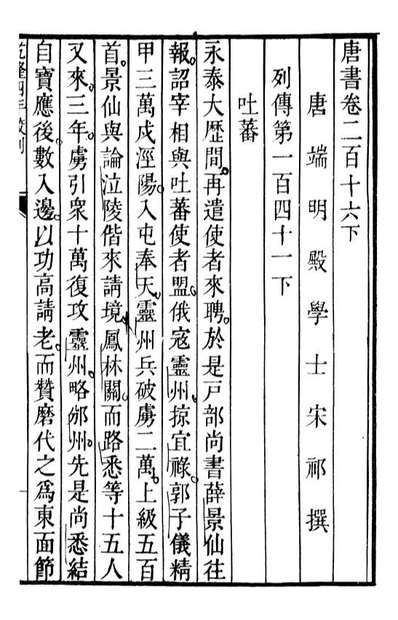 唐書卷二百十六下
唐端明殿學士宋祁撰
列傳第一百四十一下
吐蕃
永泰大歴間。再遣使者來聘。於是戸部尚書薛景仙往
報。詔宰相與吐蕃使者盟。俄寇靈州。掠宜祿。郭子儀精
甲三萬戍涇陽。入屯奉天。靈州兵破虜二萬。上級五百
首。景仙與論泣陵偕來。請境鳳林關。而路悉等十五人
又來。三年。虜引衆十萬復攻靈州。略邠州。先是尚悉結
自寶應後。數入邊。以功高請老。而贊磨代之。爲東面節